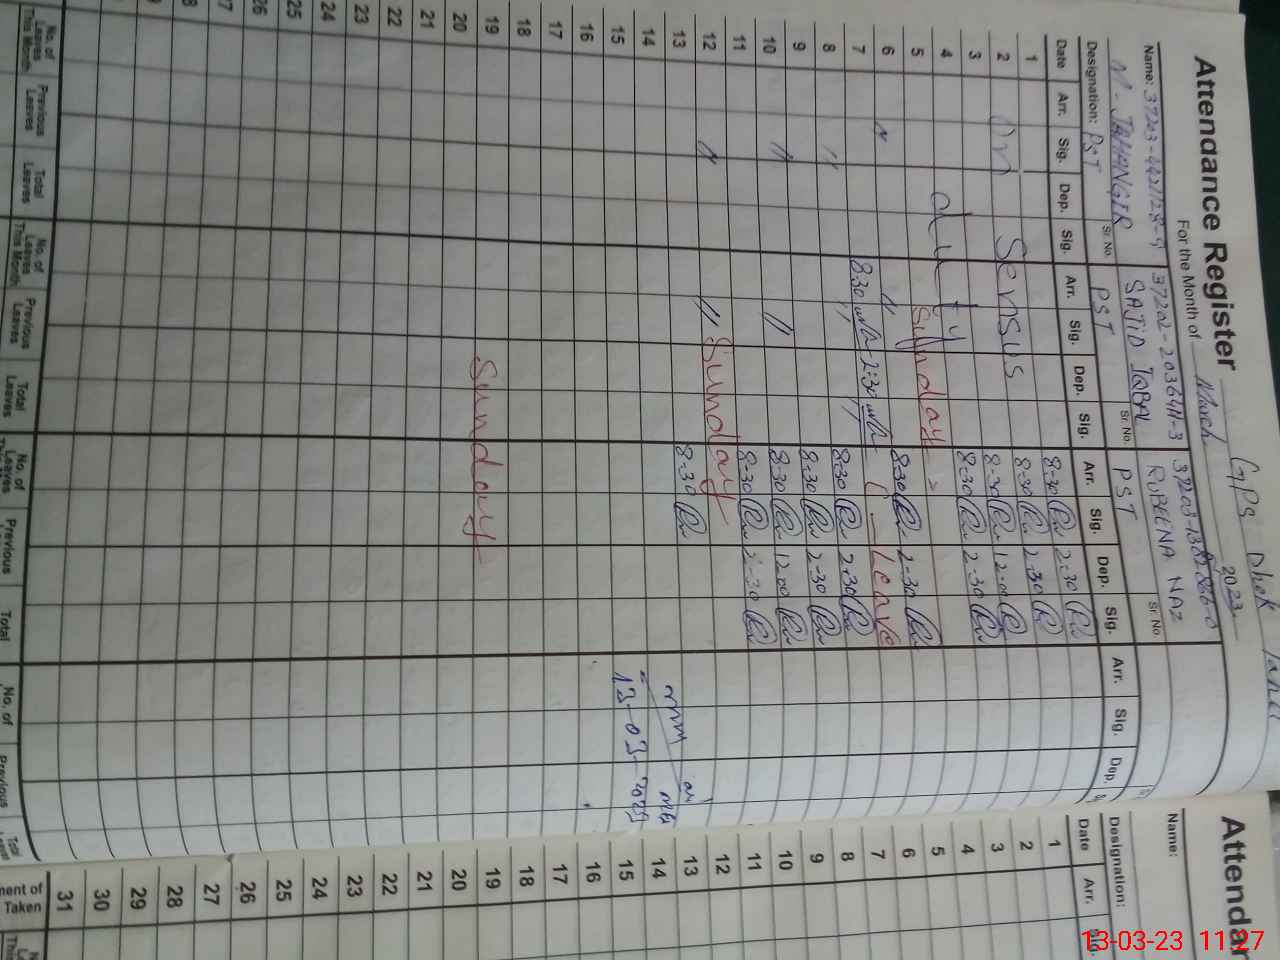 GPS Dhok
Attendance Register
For the Month of March 2023
Name: 37203-4421128-9 37202-2036411-3
M. JAHANGIR Sr. No. SAJID IQBAL Sr. No. RUBEENA NAZ Sr. No.
Designation: PST PST PST
Date Arr. Sig. Dep. Sig. Arr. Sig. Dep. Sig. Arr. Sig. Dep. Sig. Arr. Sig. Dep.
1 8-30 2-30
2 On Sensus 8-30 2-30
3 8-30 12-00
4 duty 8-30 2-30
5 Sunday
6 " " 8-30 2-30
7 8:30 2:30 Leave
8 " 8-30 2-30
9 8-30 2-30
10 " " 8-30 12-00
11 8-30 2-30
12 " " Sunday
13 8-30
14
15 13-03-2023
16
17
18
19 Sunday
20
21
22
23
24
25
26
No. of Leaves This Month Previous Leaves Total Leaves No. of Leaves This Month Previous Leaves Total Leaves No. of Leaves Previous Total No. of Previous Total
Attendar
Name:
Designation:
Date Arr. Sig.
1
2
3
4
5
6
7
8
9
10
11
12
13
14
15
16
17
18
19
20
21
22
23
24
25
26
27
28
29
30
31
ment of
Taken
13-03-23 11:27